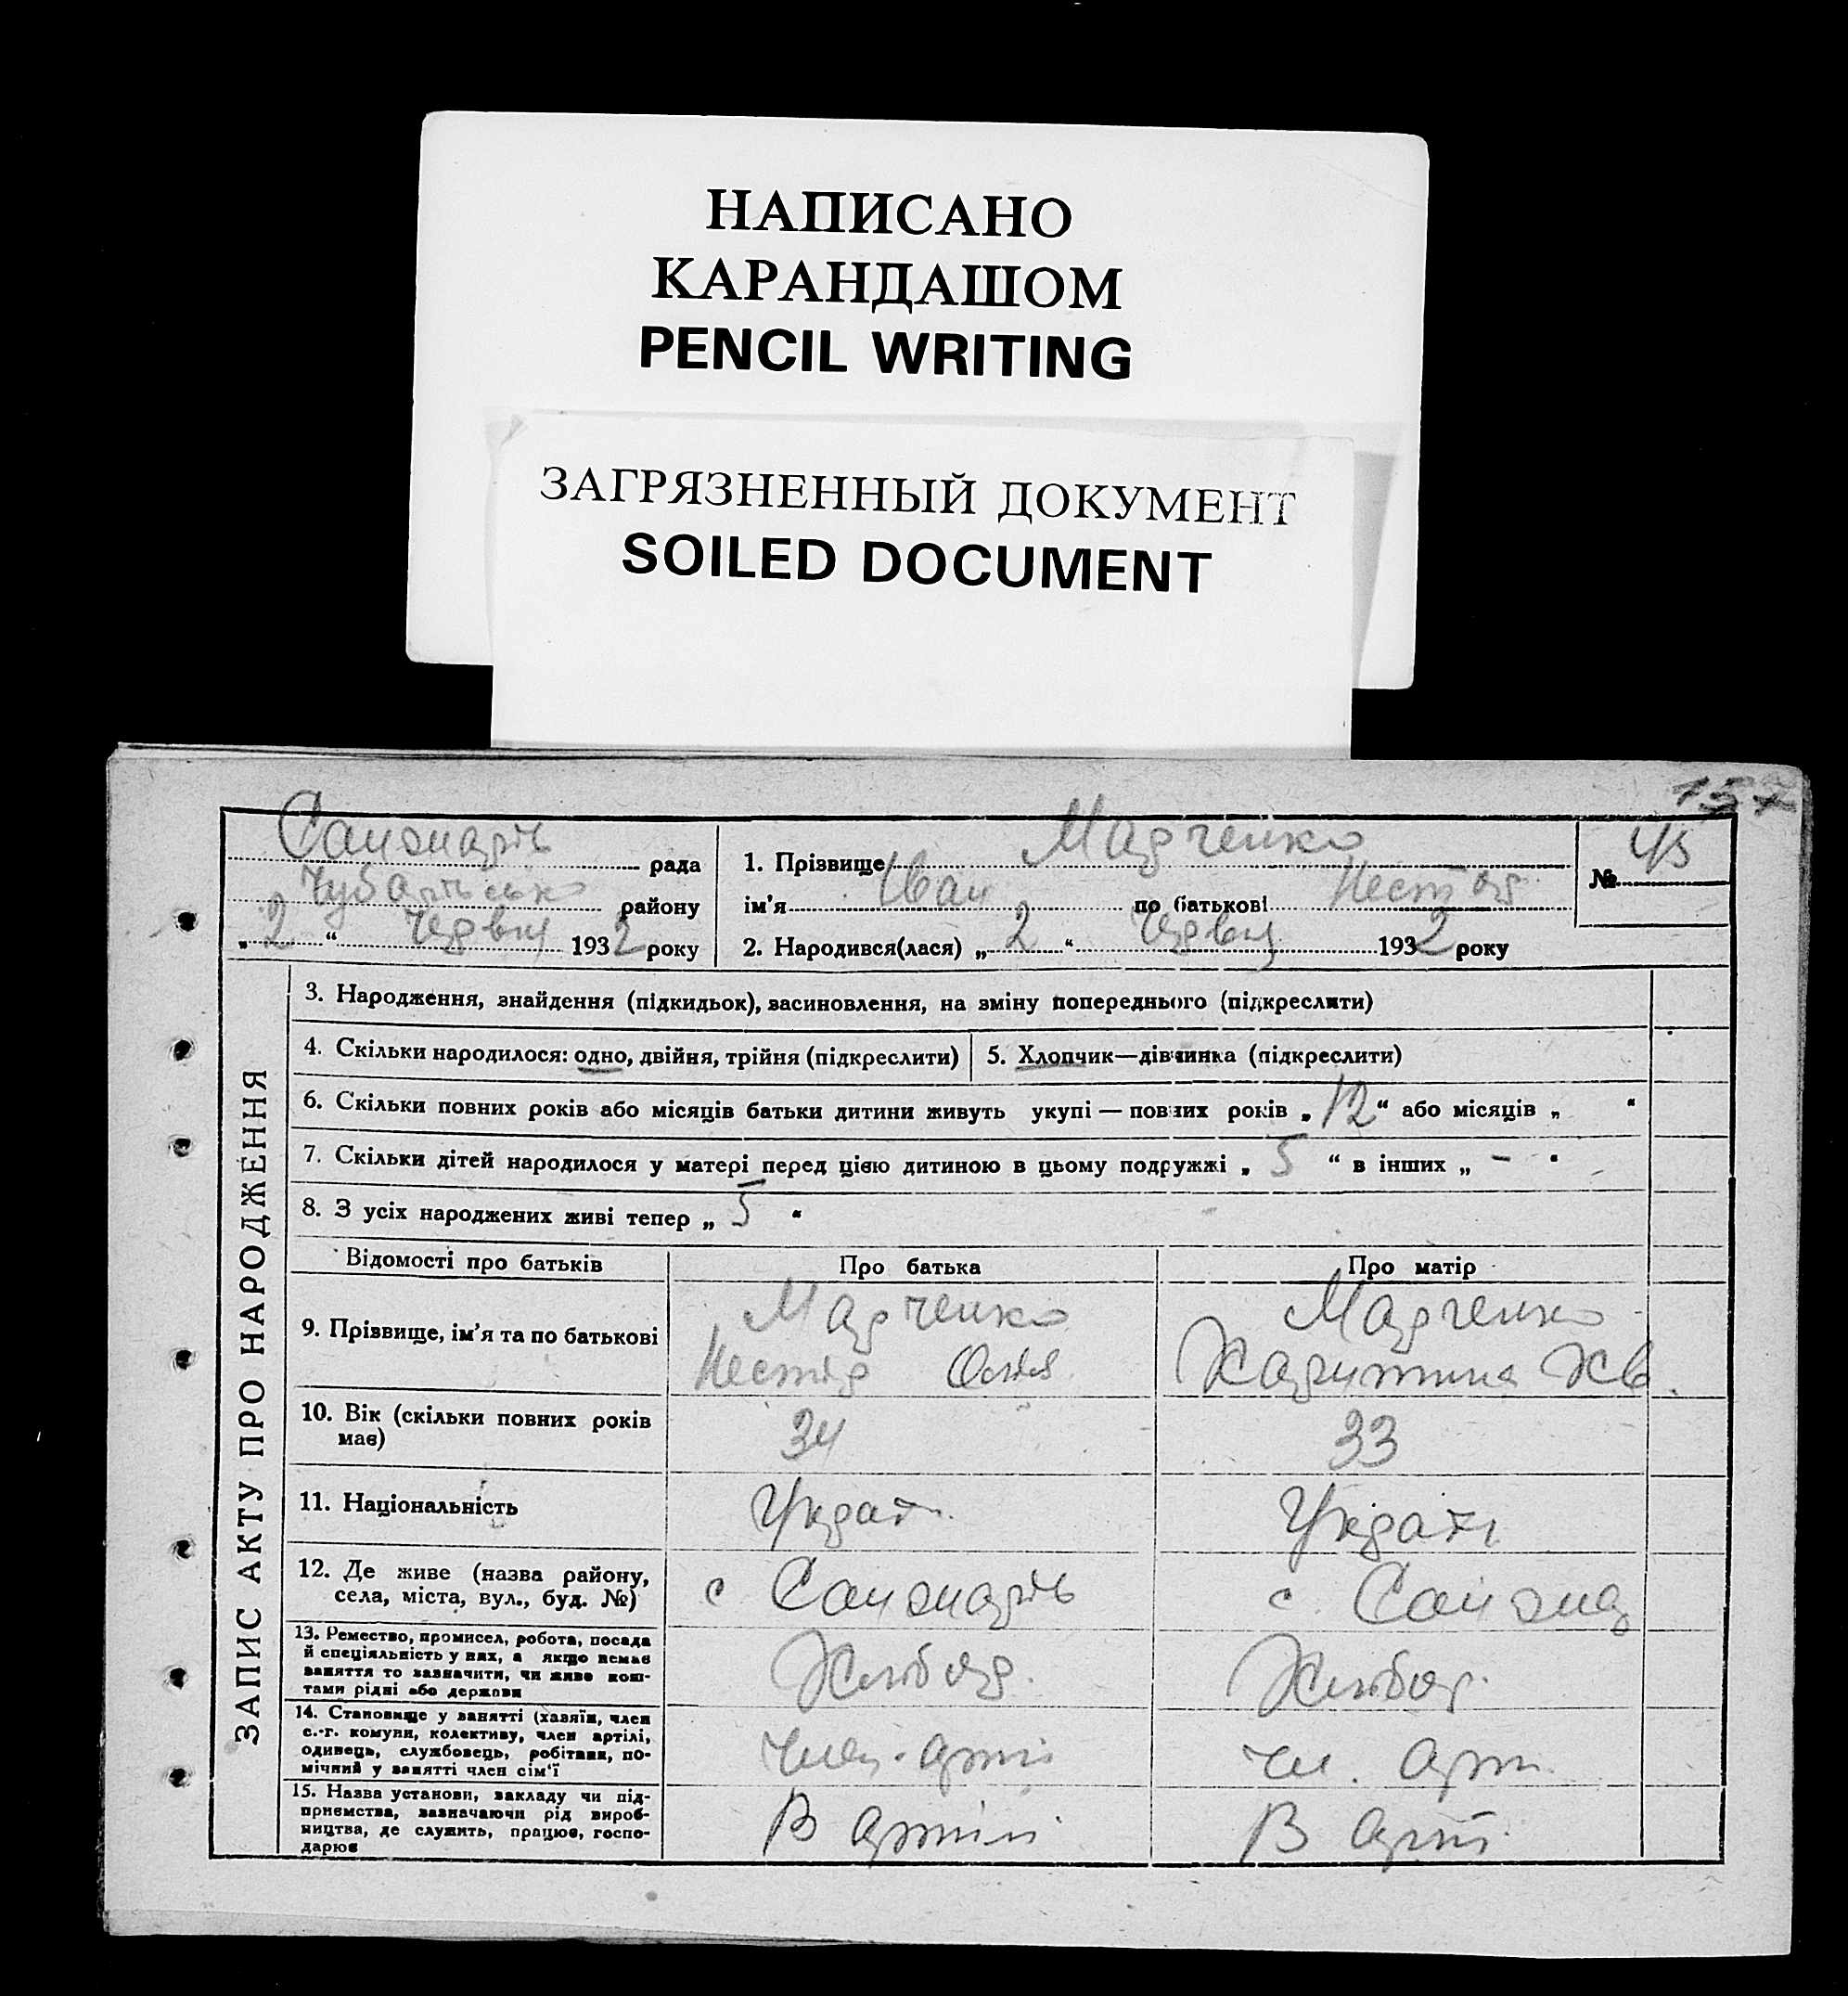 НАПИСАНО
КАРАНДАШОМ
PENCIL WRITING
ЗАГРЯЗНЕННЫЙ ДОКУМЕНТ
SOILED DOCUMENT
157
рада
району
„2“ 1932 року
1. Прізвище Марченко
ім'я Іван по батькові Нестор
2. Народився(лася) „2“ 1932 року
№ 45
ЗАПИС АКТУ ПРО НАРОДЖЕННЯ
3. Народження, знайдення (підкидьок), засиновлення, на зміну попереднього (підкреслити)
4. Скільки народилося: одно, двійня, трійня (підкреслити)
5. Хлопчик—дівчинка (підкреслити)
6. Скільки повних років або місяців батьки дитини живуть укупі — повних років „12“ або місяців „ “
7. Скільки дітей народилося у матері перед цією дитиною в цьому подружжі „5“ в інших „-“
8. З усіх народжених живі тепер „5“
Відомості про батьків Про батька Про матір
9. Прізвище, ім'я та по батькові
Марченко
Нестор
Марченко
10. Вік (скільки повних років
має)
34 33
11. Національність
12. Де живе (назва району,
села, міста, вул., буд. №)
с с.
13. Ремество, промисел, робота, посада
й спеціяльність у них, а якщо немає
заняття то зазначити, чи живе кош-
тами рідні або держави
Хлібор. Хлібор.
14. Становище у занятті (хазяїн, член
с.-г. комуни, колективу, член артілі,
одинець, службовець, робітник, по-
мічний у занятті член сім'ї
член. арті чл. арт.
15. Назва установи, закладу чи під-
приємства, зазначаючи рід вироб-
ництва, де служить, працює, госпо-
дарює
В артілі В арті